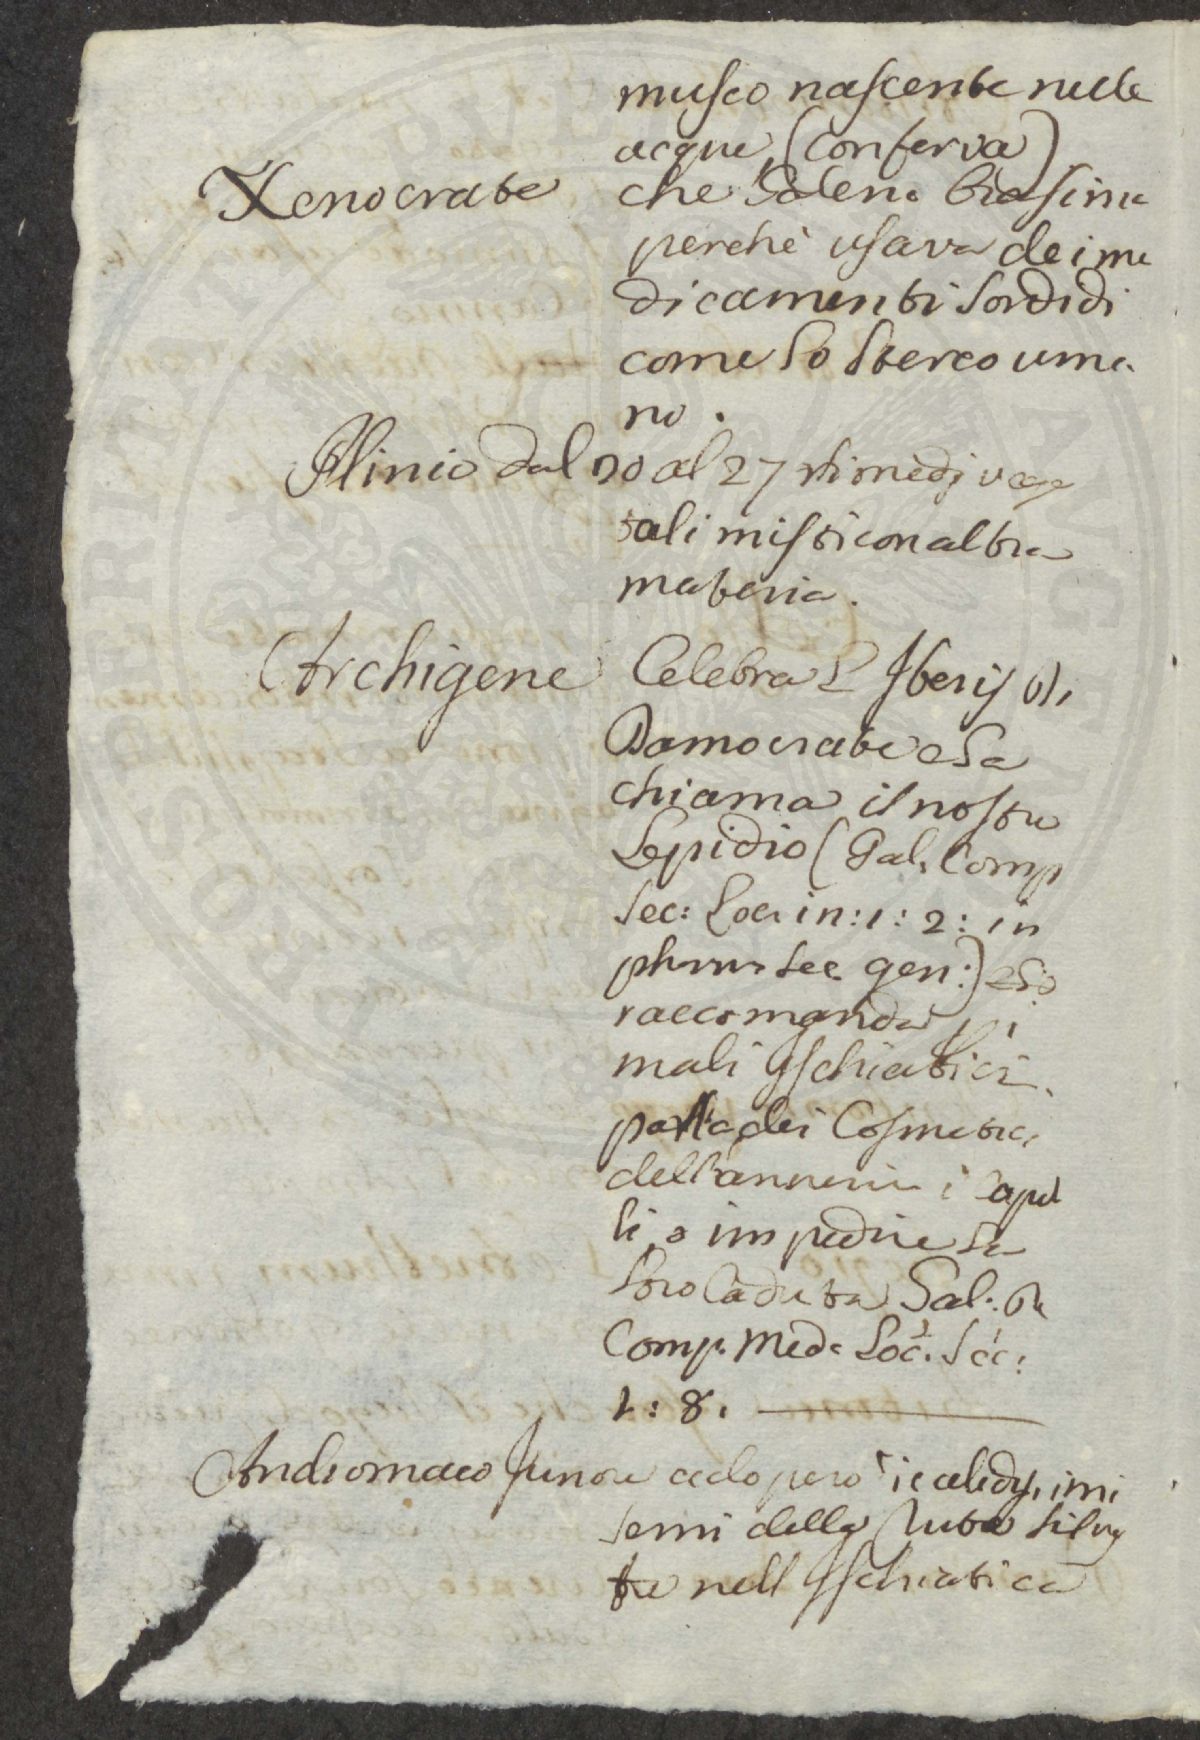 musco nascente nelle
acque (Conferva)
Xenocrate che Galeno biasima
perchè usava dei me
dicamenti sordidi
come lo sterco uma
no.
Plinio dal 20 al 27 rimedj vege
tali misti con altra
materia.
Archigene Celebra l'Iberis di
Damocrate e la
chiama il nostro
Lepidio (Gal. Comp
sec: Loc. in: 1: 2: in
sec. gen:) e lo
raccomanda pei
mali Ischiatici.
parla dei Cosmetici
dell'annerire i Capel
li, o impedire la
loro Caduta Gal: de
Comp. Med. Loc. Sec:
1: 8.
Andromaco Juniore adoperò i
semi della Ruta Silve
stre nell'Ischiatica